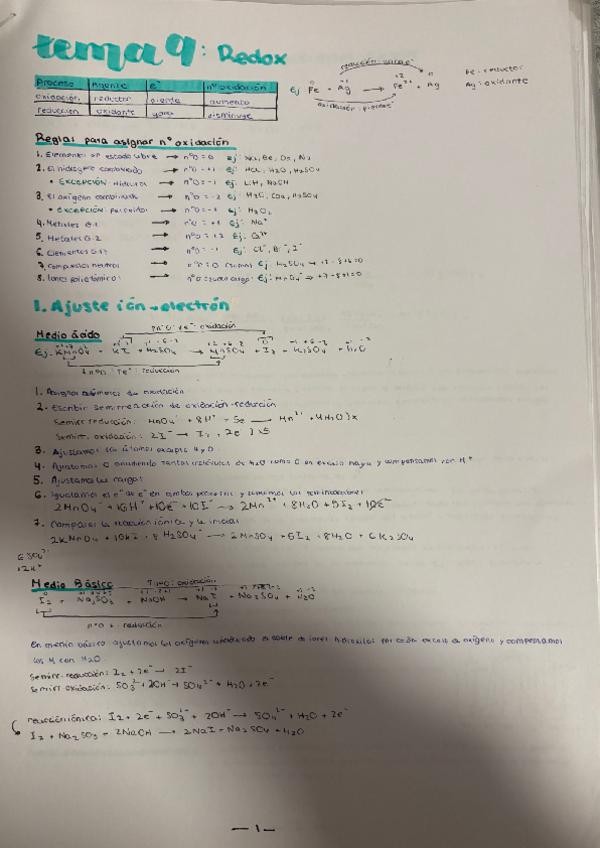 tema 9: Redox
Proceso Agente e⁻ nº oxidación
oxidación reductor pierde aumenta
reducción oxidante gana disminuye
reducción: gana e⁻
Ej Fe + Ag → Fe²⁺ + Ag
oxidación: pierde e⁻
Fe: reductor
Ag: oxidante
Reglas para asignar nº oxidación
1. Elementos en estado libre → nºO = 0 Ej:
2. El hidrógeno combinado → nºO = +1 Ej: HCl, H2O, H2SO4
• EXCEPCIÓN: Hidruros → nºO = -1 Ej: LiH,
3. El oxígeno combinado → nºO = -2 Ej: H2O,
• EXCEPCIÓN: peróxidos → nºO = -1 Ej: H2O2
4. Metales G.1 → nºO = +1 Ej: Na⁺
5. Metales G.2 → nºO = +2 Ej: Ca²⁺
6. Elementos G.17 → nºO = -1 Ej: Cl⁻, Br⁻, I⁻
7. Compuestos neutros → nºO = 0 (suma) Ej: H2SO4 → +2 +6 -8 = 0
8. Iones poliatómicos → Ej: MnO4⁻
1. Ajuste ión-electrón
Medio ácido
oxidación
Ej. KMnO4 + KI + H2SO4 → MnSO4 + I2 + K2SO4 + H2O
reducción
1. Asignar números de oxidación
2. Escribir semirreacción de oxidación-reducción
Semirr reducción: MnO4⁻ + 8H⁺ + 5e → Mn²⁺ + 4H2O) x
Semirr. oxidación: 2I⁻ → I2 + 2e⁻ ) x5
3. Ajustamos los átomos excepto H y O
4. Ajustamos O añadiendo tantas moléculas de H2O como O en exceso haya y compensamos con H⁺
5. Ajustamos las cargas
6. Igualamos el nº de e⁻ en ambos procesos y sumamos las semirreacciones
2MnO4⁻ + 16H⁺ + 10e⁻ + 10I⁻ → 2Mn²⁺ + 8H2O + 5I2 + 10e⁻
7. Comparar la reacción iónica y la inicial
2KMnO4 + 10KI + 8H2SO4 → 2MnSO4 + 5I2 + 8H2O + 6K2SO4
6SO4²⁻
12K⁺
Medio Básico
oxidación
I2 + Na2SO3 + NaOH → NaI + Na2SO4 + H2O
reducción
En medio básico ajustamos los oxígenos añadiendo el doble de iones hidroxilos por cada exceso de oxígeno y compensamos
los H con H2O
Semirr. reducción: I2 + 2e⁻ → 2I⁻
Semirr oxidación: SO3²⁻ + 2OH⁻ → SO4²⁻ + H2O + 2e⁻
reacción iónica: I2 + 2e⁻ + SO3²⁻ + 2OH⁻ → SO4²⁻ + H2O + 2e⁻
I2 + Na2SO3 + 2NaOH → 2NaI + Na2SO4 + H2O
— 1 —